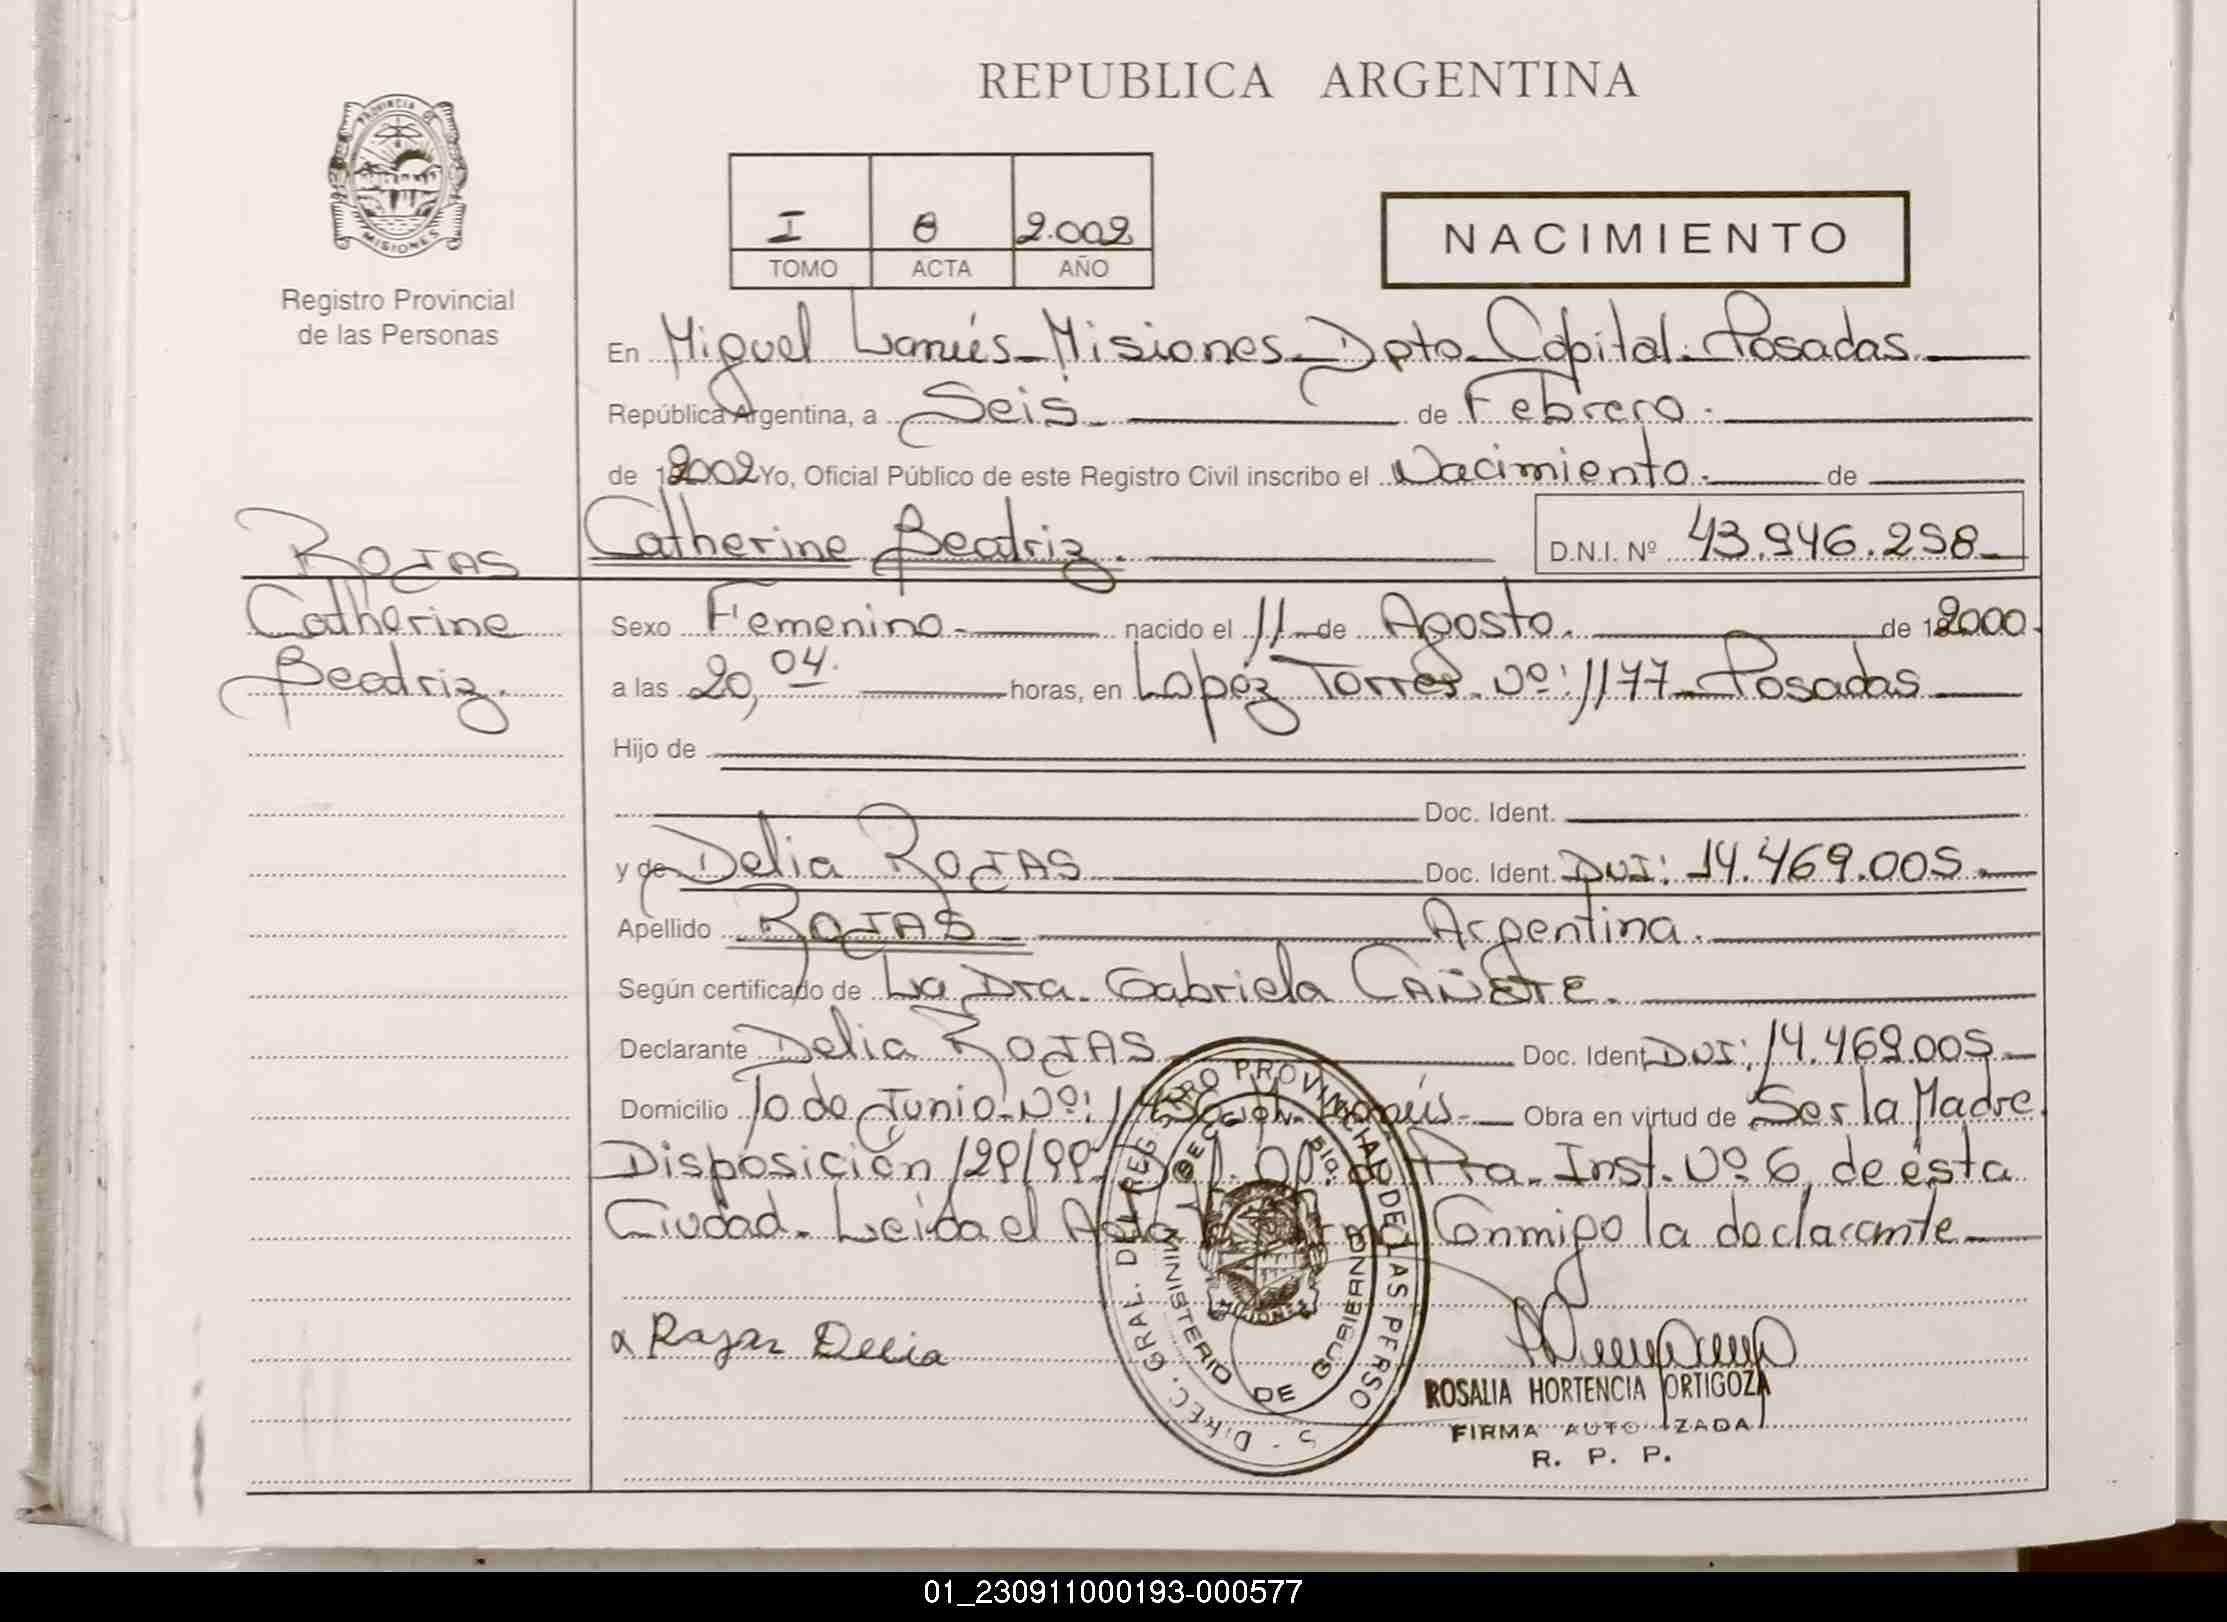 REPUBLICA ARGENTINA
PROVINCIA DE
MISIONES
Registro Provincial
de las Personas
I 8 2.002
TOMO ACTA AÑO
NACIMIENTO
En Miguel Lanús - Misiones - Dpto - Capital - Posadas
República Argentina, a Seis - de Febrero -
de 2002 Yo, Oficial Público de este Registro Civil inscribo el Nacimiento - de
Catherine Beatriz. D.N.I. Nº 43.946.258
ROJAS
Catherine
Beatriz.
Sexo Femenino - nacido el 11 de Agosto. de 2000
a las 20,04. horas, en Lopéz Torres Nº: 1177 - Posadas
Hijo de
Doc. Ident.
y de Delia ROJAS Doc. Ident. DNI: 14.469.005.
Apellido ROJAS Argentina.
Según certificado de La Dra. Gabriela CAÑETE.
Declarante Delia ROJAS Doc. Ident DNI: 14.469.005
Domicilio 10 de Junio Nº: Lanús - Obra en virtud de Ser la Madre.
Disposición 129/99 Pra. Inst. Nº 6 de ésta
Ciudad. Leída el Acta Conmigo la declarante
Rojas Delia
DIREC. GRAL. DEL REGISTRO PROVINCIAL DE LAS PERSO
MINISTERIO DE GOBIERNO
ROSALIA HORTENCIA ORTIGOZA
FIRMA AUTORIZADA
R. P. P.
01_230911000193-000577